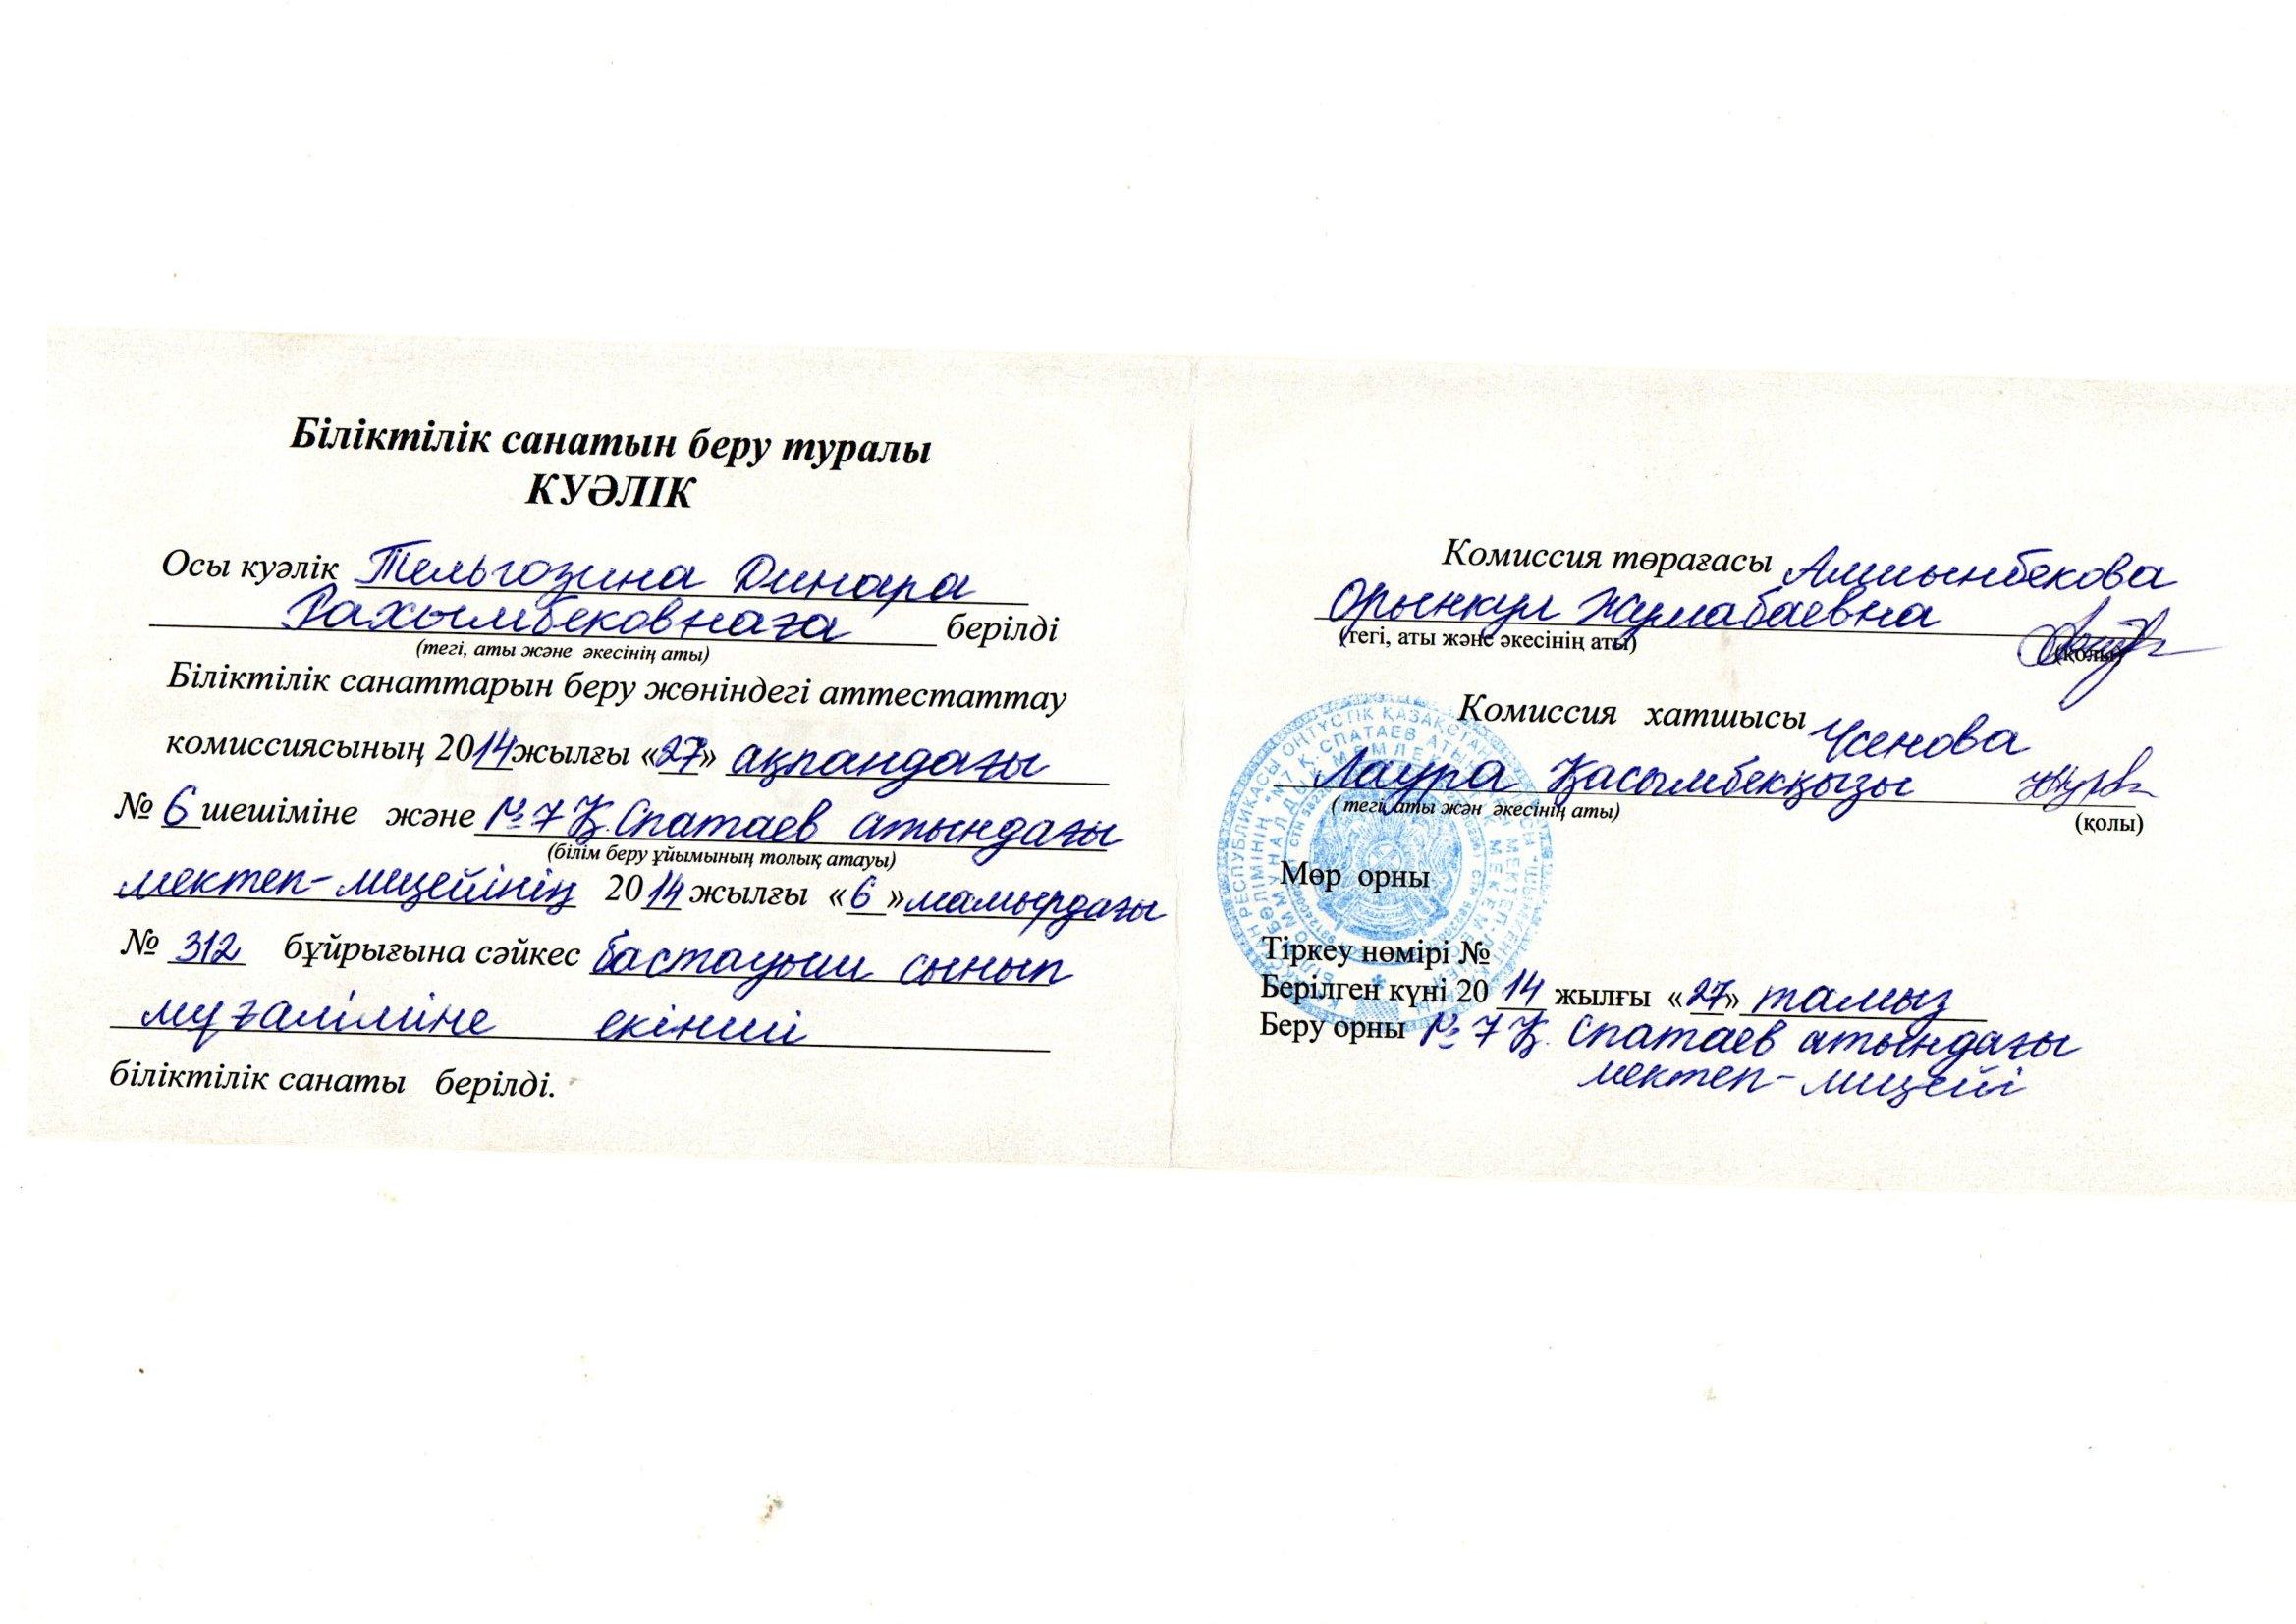 Біліктілік санатын беру туралы
КУӘЛІК
Осы куәлік Тельгозина Динара
Рахымбековнаға берілді
(тегі, аты және әкесінің аты)
Біліктілік санаттарын беру жөніндегі аттестаттау
комиссиясының 2014 жылғы «27» ақпандағы
№ 6 шешіміне және №7 Қ.Спатаев атындағы
(білім беру ұйымының толық атауы)
мектеп-лицейінің 2014 жылғы «6» мамырдағы
№ 312 бұйрығына сәйкес бастауыш сынып
мұғаліміне екінші
біліктілік санаты берілді.
Комиссия төрағасы Алшынбекова
Орынкул Жумабаевна
(тегі, аты және әкесінің аты)
(қолы)
Комиссия хатшысы Усенова
Лаура Қасымбекқызы
( тегі, аты жән әкесінің аты)
(қолы)
Мөр орны
Тіркеу нөмірі №
Берілген күні 20 14 жылғы «27» тамыз
Беру орны №7 Қ. Спатаев атындағы
мектеп-лицейі